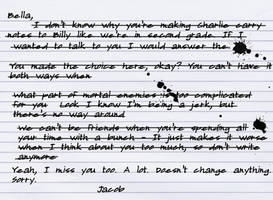 Bella,
I don't know why you're making Charlie carry
notes to Billy like we're in second grade. If I
wanted to talk to you I would answer the
You made the choice here, okay? You can't have it
both ways when
what part of mortal enemies is too complicated
for you Look I know I'm being a jerk, but
there's no way around
We can't be friends when you're spending all
your time with a bunch of It just makes it worse
when I think about you too much, so don't write
anymore
Yeah, I miss you too. A lot. Doesn't change anything.
Sorry.
Jacob